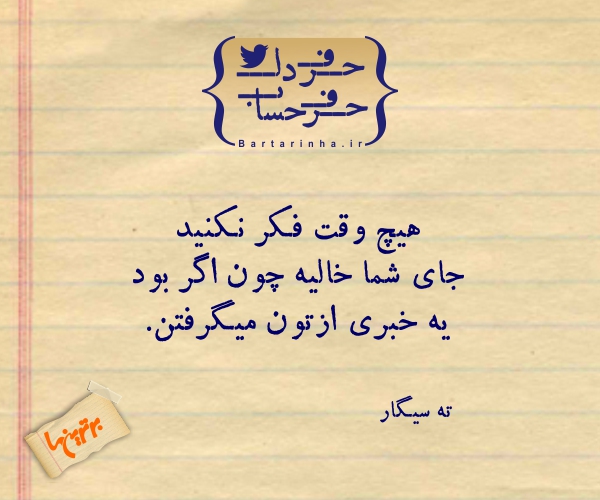 حرف دل
حرف حساب
Bartarinha.ir
هیچ وقت فکر نکنید
جای شما خالیه چون اگر بود
یه خبری ازتون میگرفتن.
ته سیگار
برترین‌ها